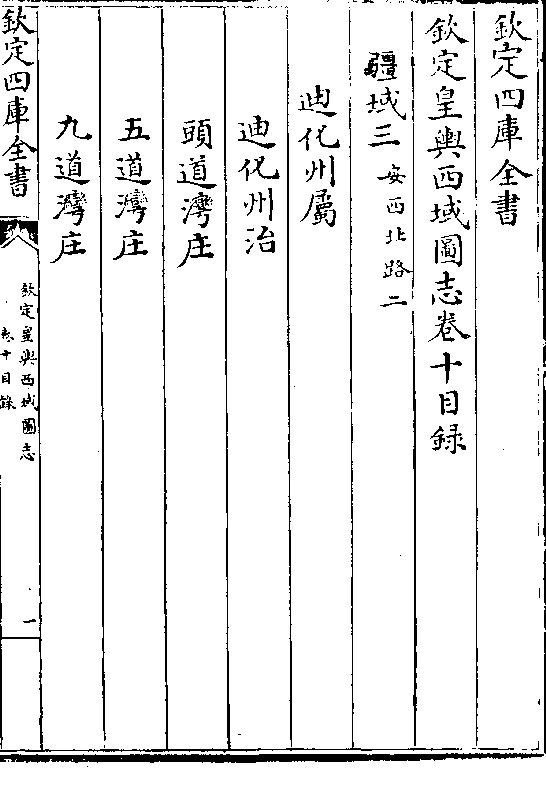 欽定四庫全書
欽定皇輿西域圖志卷十目録
疆域三 安西北路二
迪化州屬
迪化州治
頭道灣庄
五道灣庄
九道灣庄
欽定四庫全書
欽定皇輿西域圖志
卷十目錄
一